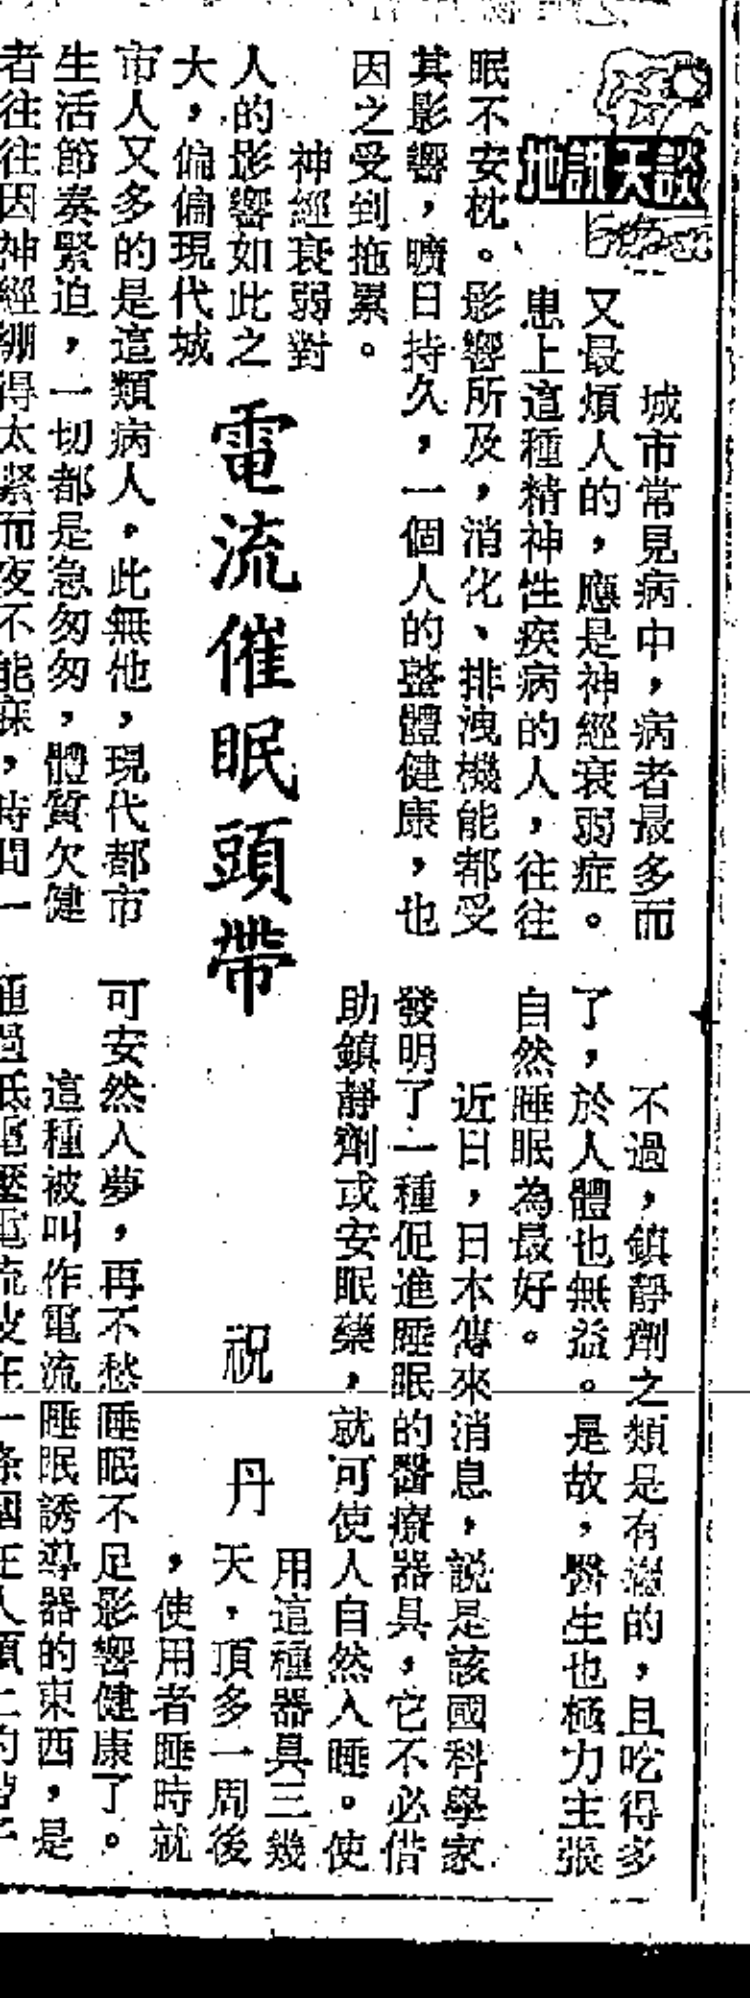 談天説地
電流催眠頭帶
祝丹
城市常見病中，病者最多而
又最煩人的，應是神經衰弱症。
患上這種精神性疾病的人，往往
眠不安枕。影響所及，消化、排洩機能都受
其影響，曠日持久，一個人的整體健康，也
因之受到拖累。
神經衰弱對
人的影響如此之
大，偏偏現代城
市人又多的是這類病人，此無他，現代都市
生活節奏緊迫，一切都是急匆匆，體質欠健
者往往因神經綳得太緊而夜不能寐，時間一
不過，鎮靜劑之類是有癮的，且吃得多
了，於人體也無益。是故，醫生也極力主張
自然睡眠為最好。
近日，日本傳來消息，説是該國科學家
發明了一種促進睡眠的醫療器具，它不必借
助鎮靜劑或安眠藥，就可使人自然入睡。使
用這種器具三幾
天，頂多一周後
，使用者睡時就
可安然入夢，再不愁睡眠不足影響健康了。
這種被叫作電流睡眠誘導器的東西，是
通過低電壓電流